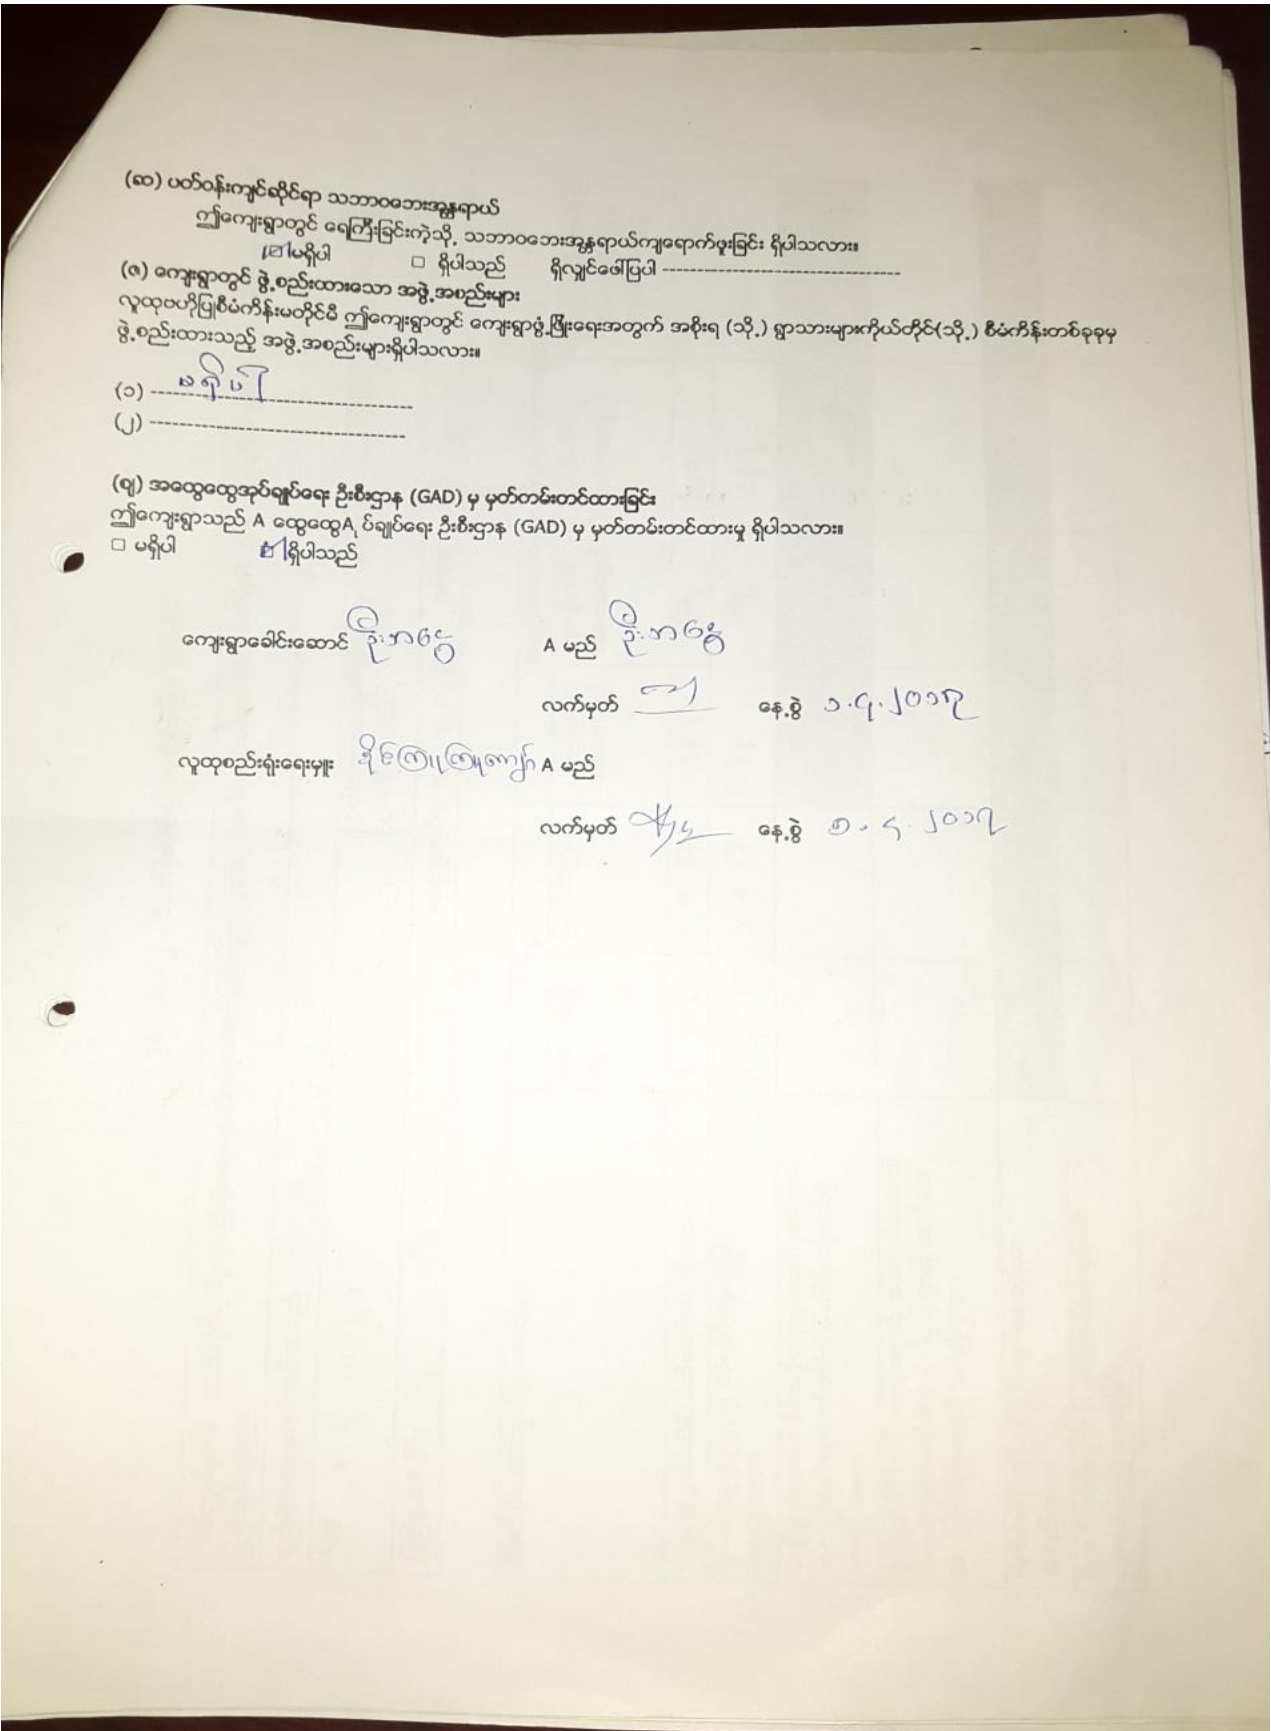 (ဆ) ပတ်ဝန်းကျင်ဆိုင်ရာ သဘာဝဘေးအန္တရာယ်
ဤကျေးရွာတွင် ရေကြီးခြင်းကဲ့သို့ သဘာဝဘေးအန္တရာယ်ကျရောက်ဖူးခြင်း ရှိပါသလား။
☑ မရှိပါ □ ရှိပါသည် ရှိလျှင်ဖော်ပြပါ ----------------------------------
(ဇ) ကျေးရွာတွင် ဖွဲ့စည်းထားသော အဖွဲ့အစည်းများ
လူထုဗဟိုပြုစီမံကိန်းမတိုင်မီ ဤကျေးရွာတွင် ကျေးရွာဖွံ့ဖြိုးရေးအတွက် အစိုးရ (သို့) ရွာသားများကိုယ်တိုင်(သို့) စီမံကိန်းတစ်ခုခုမှ
ဖွဲ့စည်းထားသည့် အဖွဲ့အစည်းများရှိပါသလား။
(၁) မရှိပါ
(၂) ------------------------------------
(ဈ) အထွေထွေအုပ်ချုပ်ရေး ဦးစီးဌာန (GAD) မှ မှတ်တမ်းတင်ထားခြင်း
ဤကျေးရွာသည် A ထွေထွေA ုပ်ချုပ်ရေး ဦးစီးဌာန (GAD) မှ မှတ်တမ်းတင်ထားမှု ရှိပါသလား။
□ မရှိပါ ☑ ရှိပါသည်
ကျေးရွာခေါင်းဆောင် ဦးဘငွေ A မည် ဦးဘငွေ
လက်မှတ် နေ့စွဲ ၁.၄.၂၀၁၇
လူထုစည်းရုံးရေးမှူး A မည်
လက်မှတ် နေ့စွဲ ၁.၄.၂၀၁၇